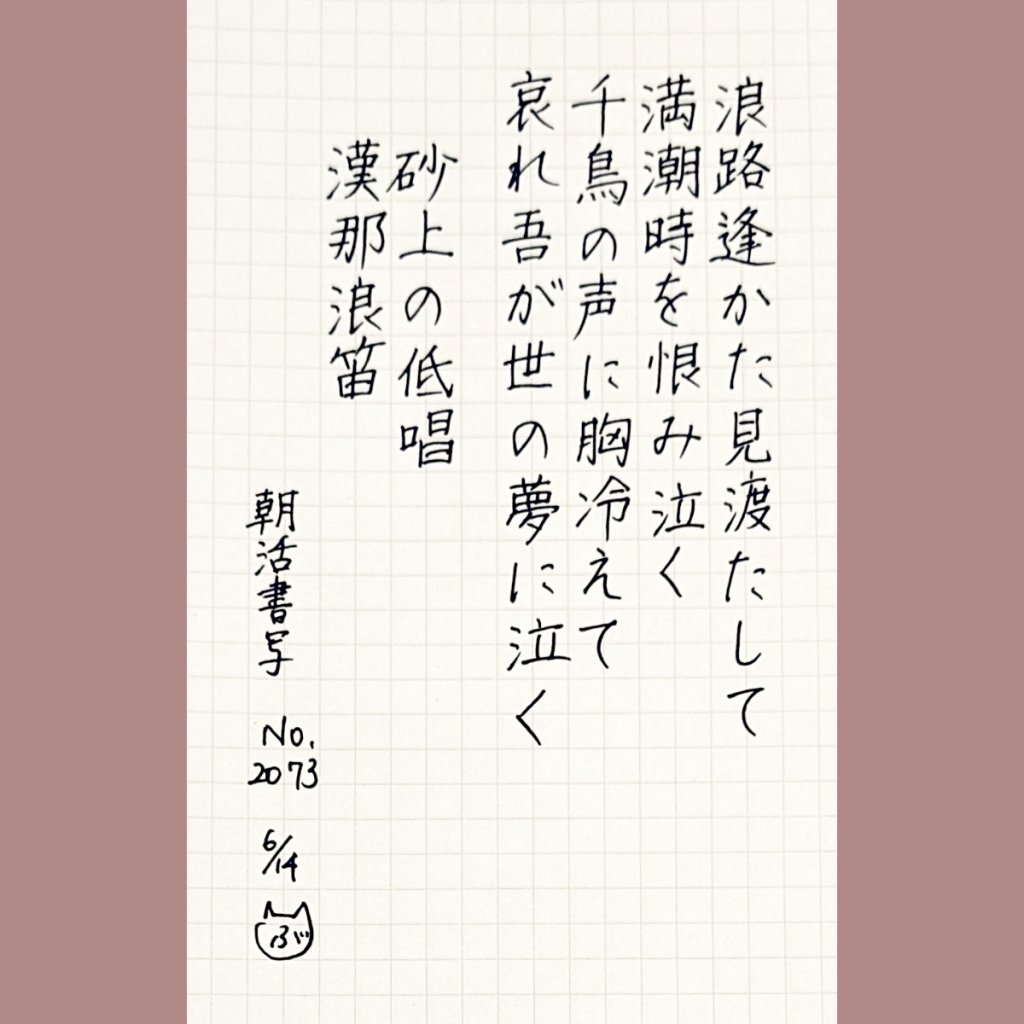 浪路逢かた見渡たして
満潮時を恨み泣く
千鳥の声に胸冷えて
哀れ吾が世の夢に泣く
砂上の低唱
漢那浪笛
朝活書写 No. 2073 6/14
ぶ